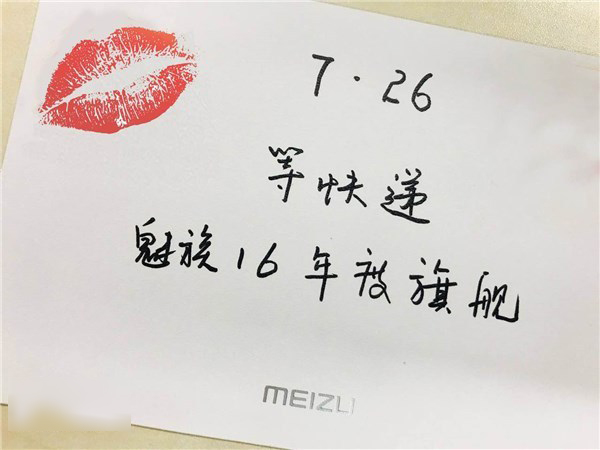 7·26
等快递
魅族16年度旗舰
MEIZU